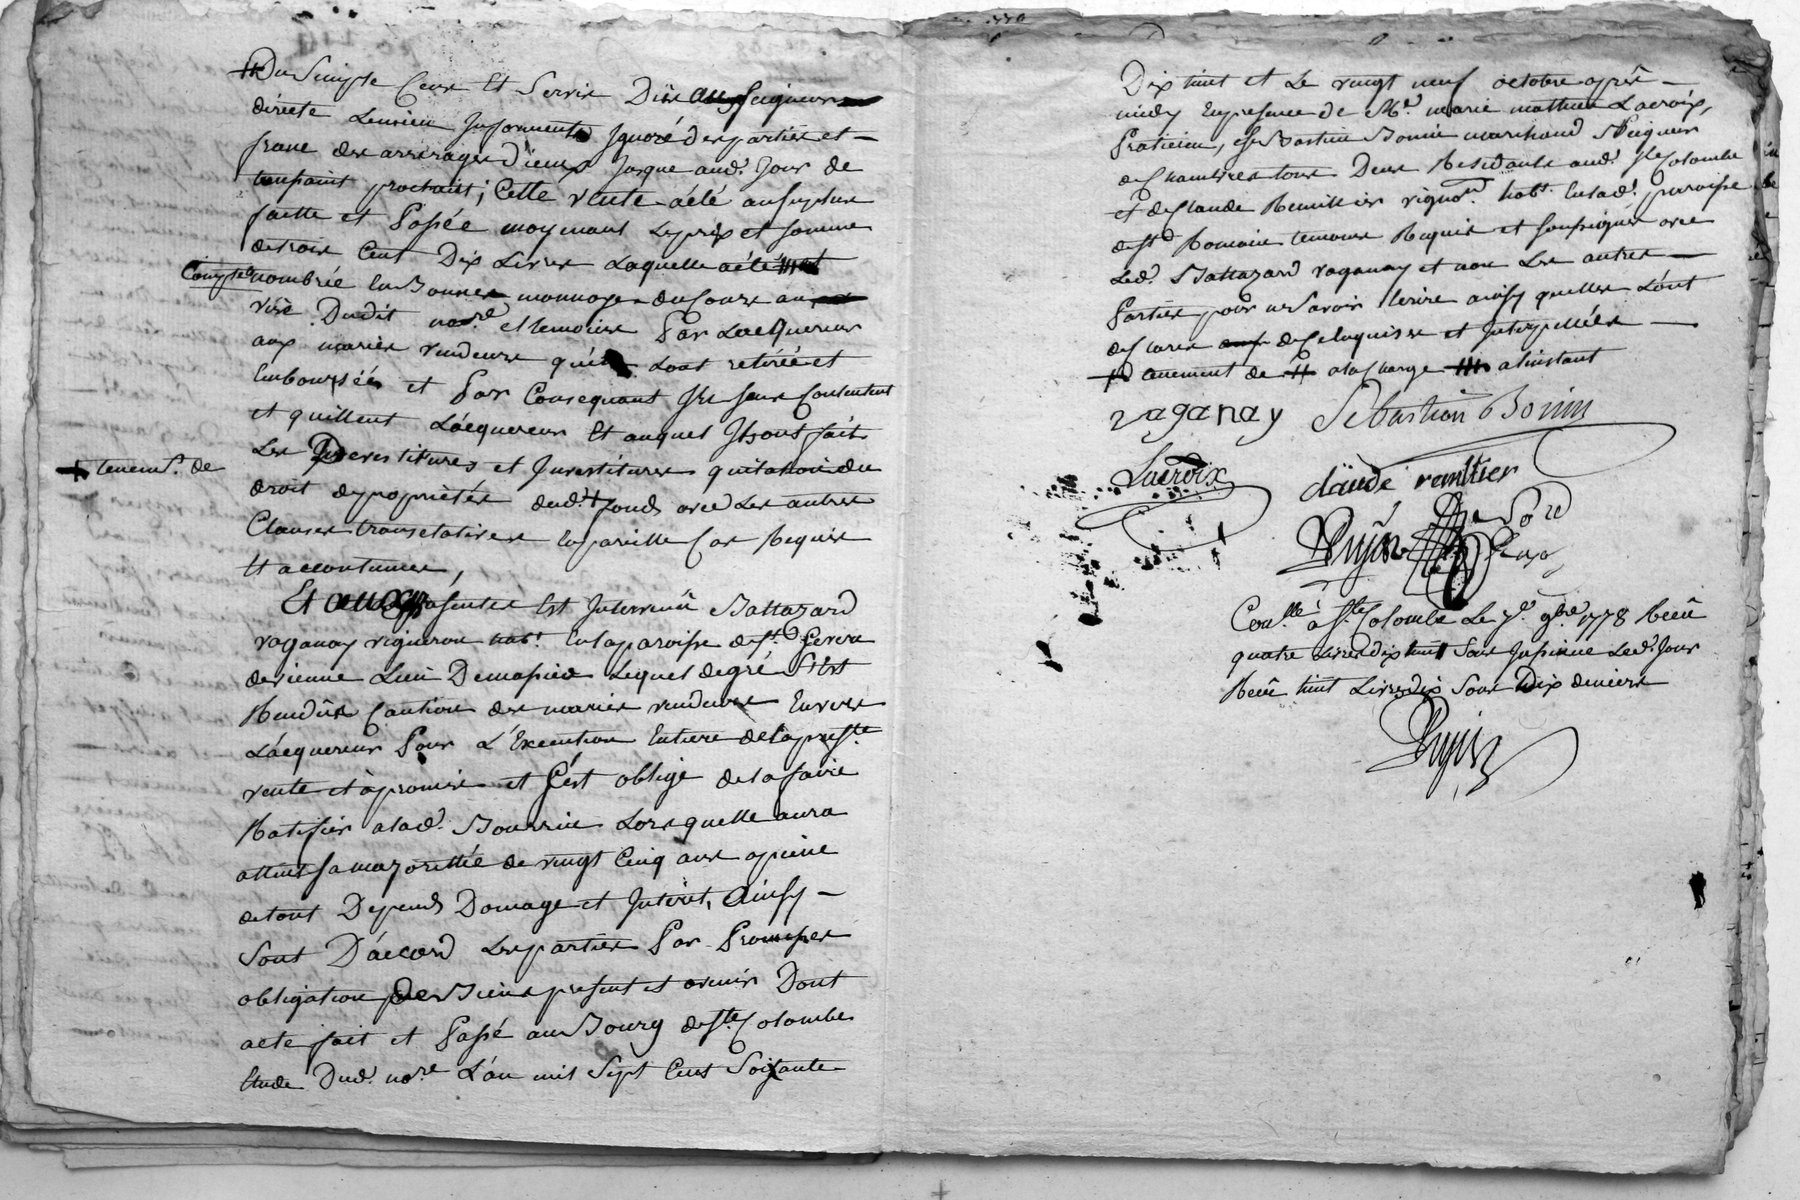 Du Simple Cens Et Servis Due aux Seigneurs
directe Lensieu Informente Ignoré des parties et
franc des arrerages D'iceux Jusque aud. Jour de
toussaint prochain; Cette vente a été au surplus
faitte et Passée moyenant Le prix et somme
de trois Cent Dix Livres Laquelle a été
Comptée nombrée En Bonnes monnoye du Cours au
vise Dudit nore. et temoins Par L'acquereur
aux mariés vendeurs qu'ils L'ont retirée et
Emboursée et Par Consequant Ils sens Contentent
et quittent L'acquereur Et auquel Ils ont fait
Les Devestitures et Investitures quitation du
droit de proprietée dud. fonds avec Les autres
tenemt. de
Clauses translatives En pareille Cas Requise
Et accoutumée,
Et aux presentes Est Intervenû Baltazard
vaganay vigneron habt. En la paroisse de St. Severe
de vienne Lieu De mapied Lequel de gré S'Est
Rendûe Caution des mariés vendeurs Envers
L'acquereur Pour L'Execution Entiere de la preste.
vente et a promis et s'est obligé de la faire
Ratifier a lad. Bourrin Lors quelle aura
attint sa majoritée de vingt Cinq ans a peine
de tout Depends Domage et Interet, Ainsy
Sont D'accord Les parties Par Promesses
obligation De Biens present et avenir Dont
acte fait et Passé au Bourg de Ste. Colombe
Etude Dud. nore. L'an mil Sept Cens Soixante
Dix huit et Le vingt neuf octobre après
midy En presence de Me. marie mathieu Lacroix,
Praticien, sr. Sebastien Bonin marchand
de chambres tous Deux Residants aud. Ste. Colombe
et de Claude Remillier vigno. habt. En lad. paroisse
de St. Romain temoins Requis et soussignés avec
Led. Baltazard vaganay et non Les autres
Parties pour ne savoir Ecrire ainsy quelles L'ont
declarés de ce Enquises et Interpellées
tenement de a la charge a l'instant
vaganay Sebastien Bonin
Lacroix claude remillier
Con.lle à Ste. Colombe Le 7e. 9bre 1778 Receû
quatre Livres dix huit Sous Insinué Led. Jour
Receû huit Livres dix Sous Dix deniers